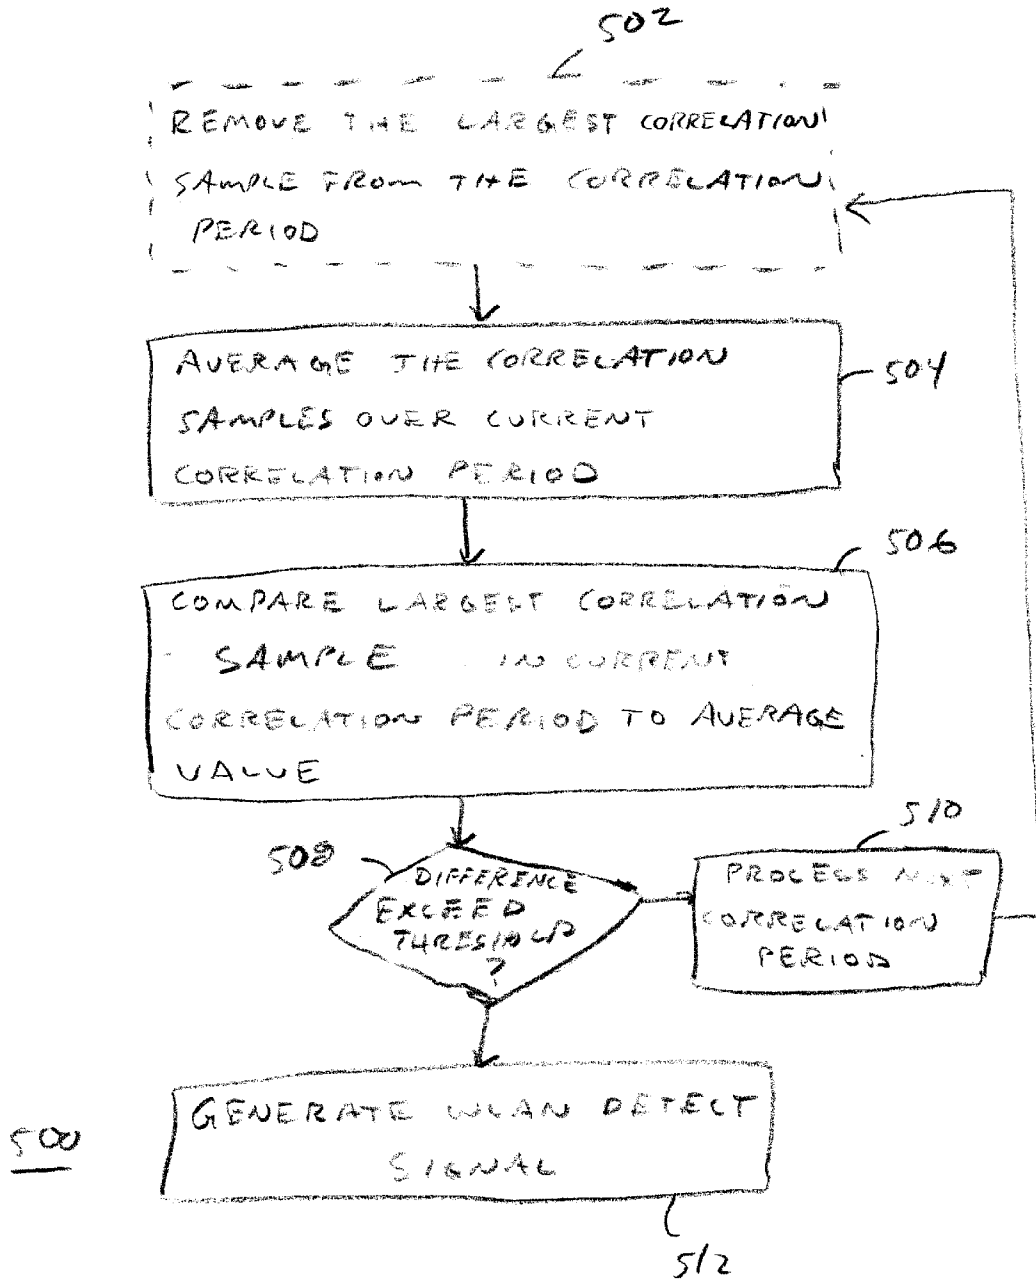 502
REMOVE THE LARGEST CORRELATION
SAMPLE FROM THE CORRELATION
PERIOD
AVERAGE THE CORRELATION
SAMPLES OVER CURRENT
CORRELATION PERIOD
504
506
COMPARE LARGEST CORRELATION
SAMPLE IN CURRENT
CORRELATION PERIOD TO AVERAGE
VALUE
508
DIFFERENCE
EXCEED
THRESHOLD
?
510
PROCESS NEXT
CORRELATION
PERIOD
GENERATE WLAN DETECT
SIGNAL
500
512